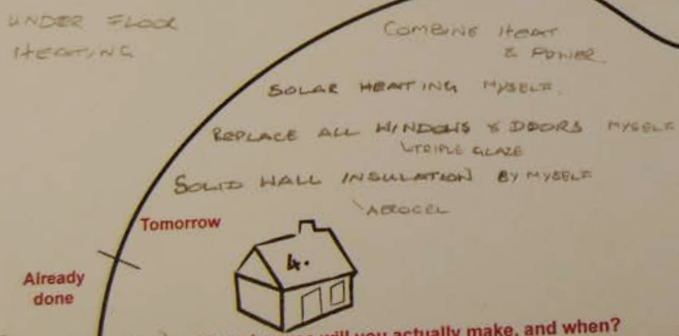 UNDER FLOOR
HEATING
COMBINE HEAT
& POWER
SOLAR HEATING MYSELF.
REPLACE ALL WINDOWS & DOORS MYSELF
TRIPLE GLAZE
SOLID WALL INSULATION BY MYSELF
AEROGEL
Tomorrow
4.
Already
done
will you actually make, and when?